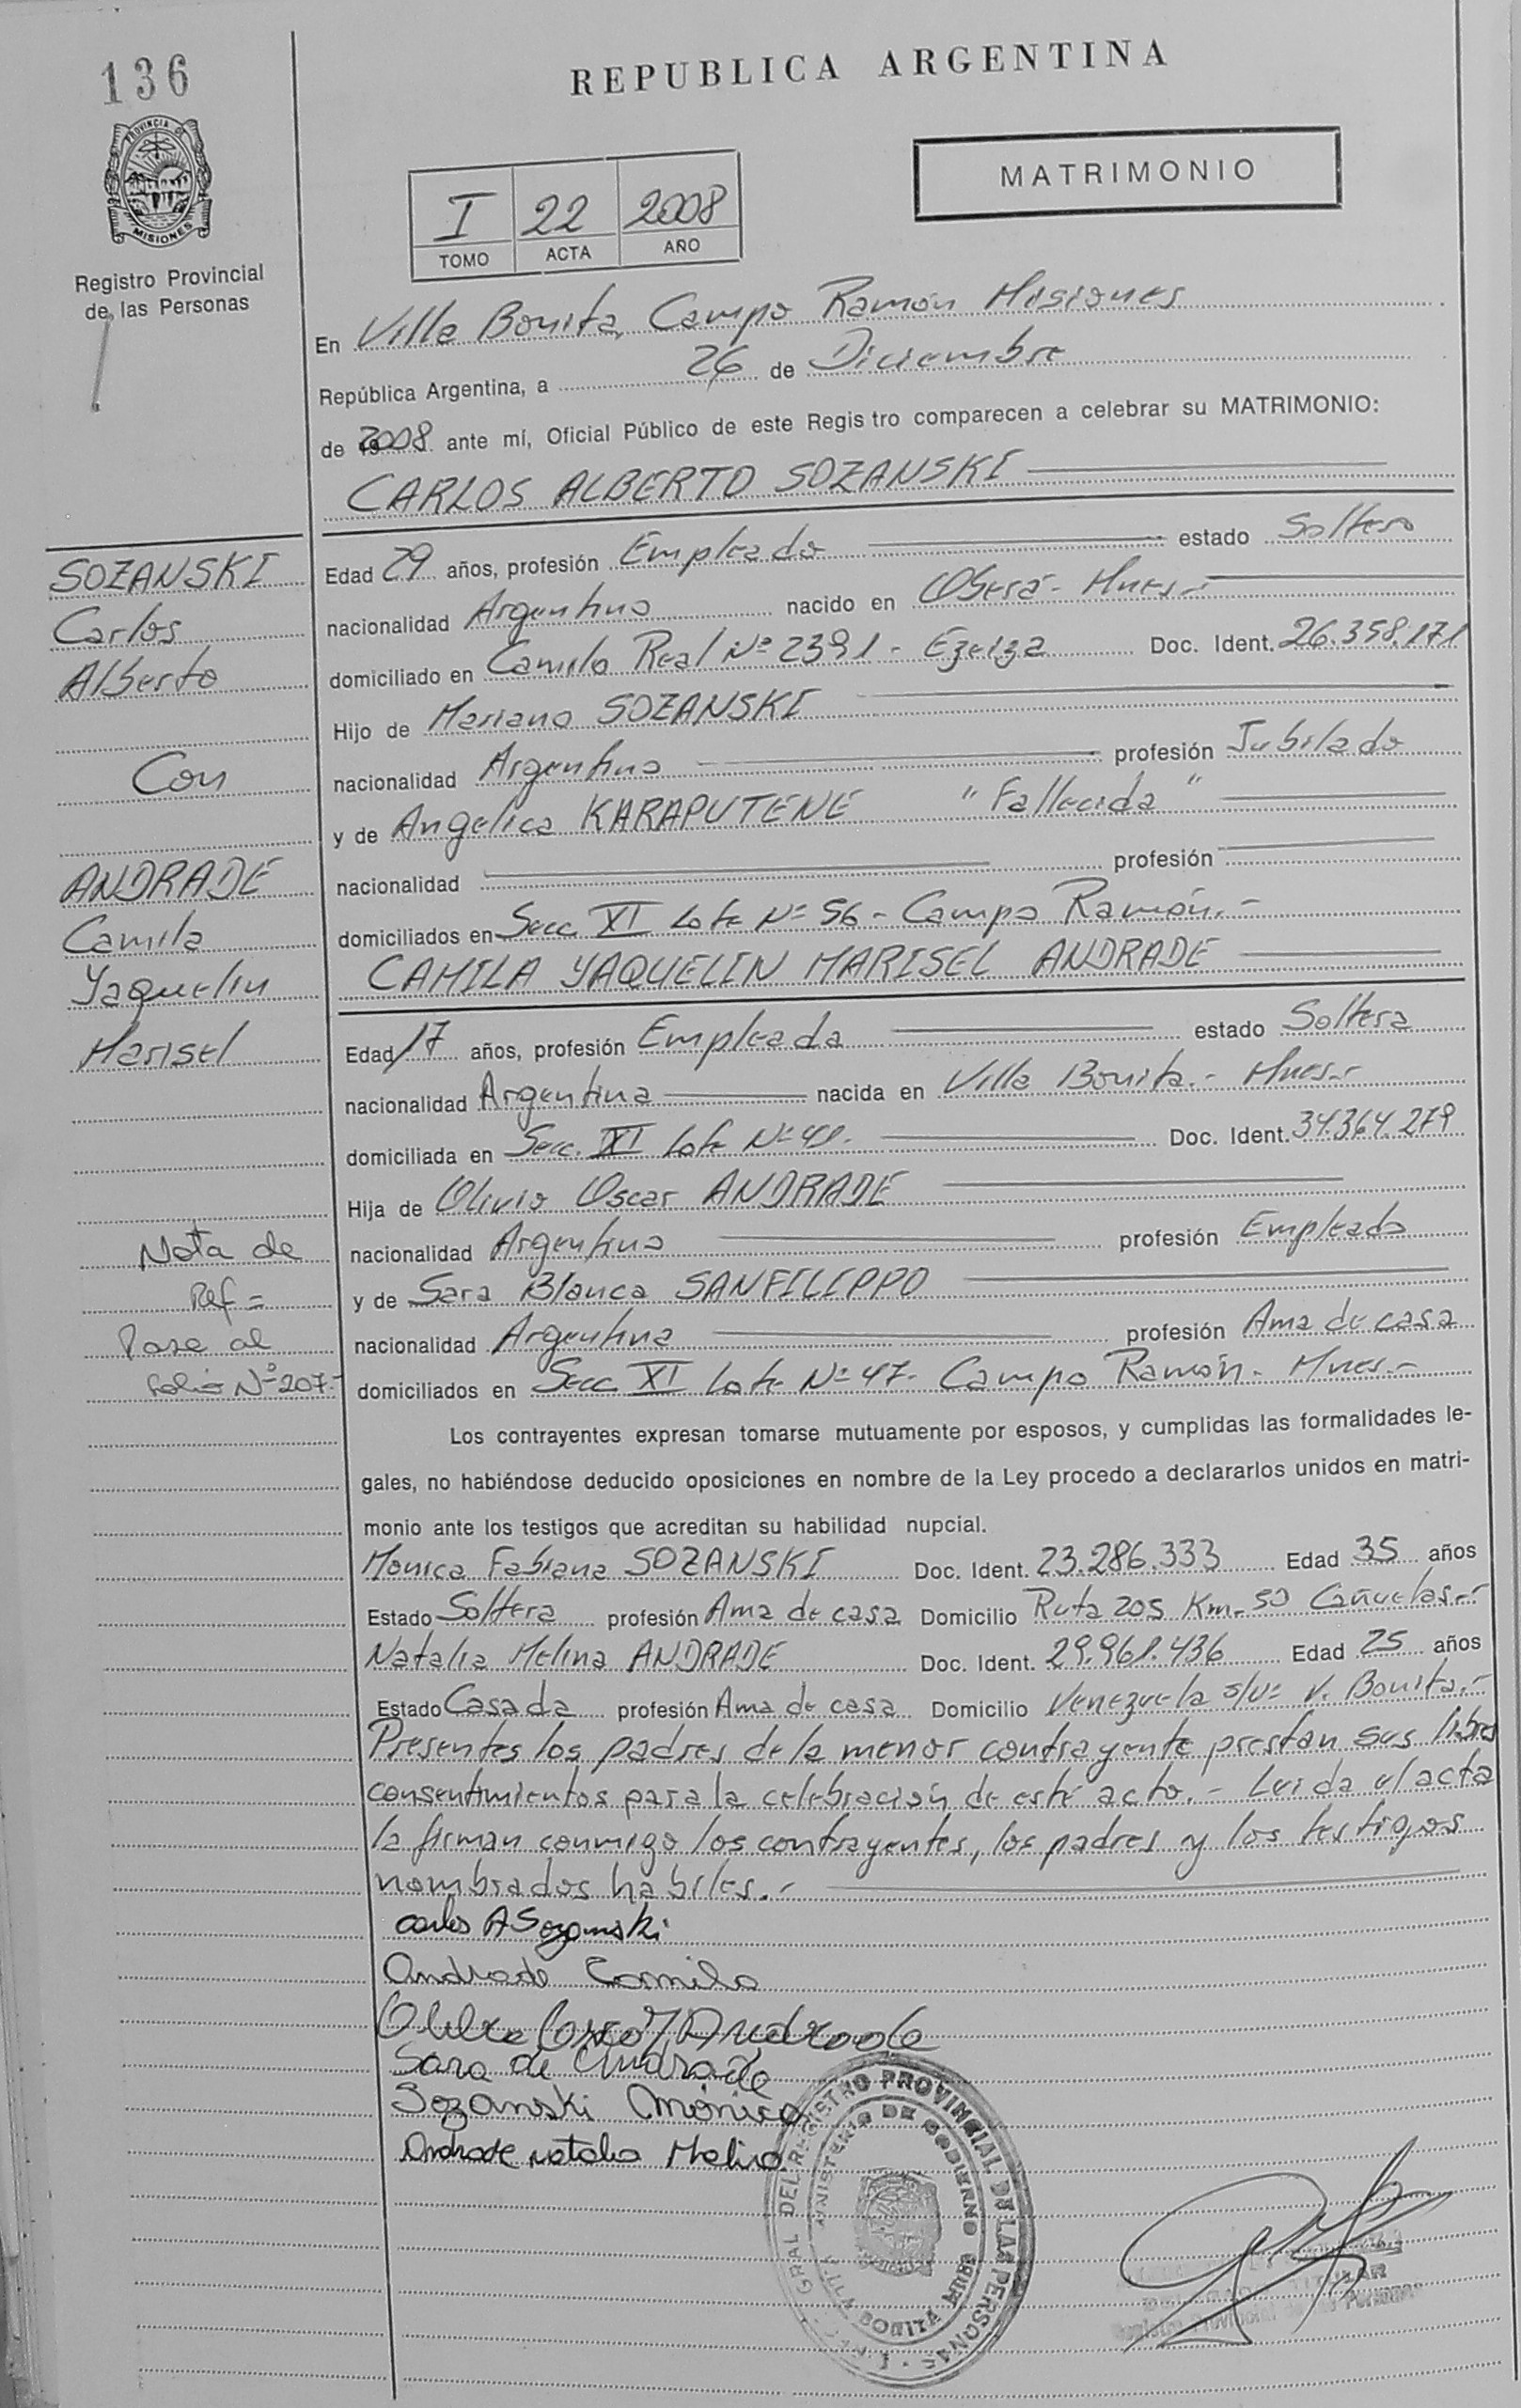 136
REPUBLICA ARGENTINA
PROVINCIA DE
MISIONES
Registro Provincial
de las Personas
MATRIMONIO
I 22 2008
TOMO ACTA AÑO
En Villa Bonita, Campo Ramón Misiones
República Argentina, a 26 de Diciembre
de 2008 ante mí, Oficial Público de este Regis tro comparecen a celebrar su MATRIMONIO:
CARLOS ALBERTO SOZANSKI
SOZANSKI
Carlos
Alberto
Con
ANDRADE
Camila
Yaquelin
Marisel
Nota de
Ref =
Pase al
folio Nº 207.-
Edad 29 años, profesión Empleado estado Soltero
nacionalidad Argentino nacido en Oberá - Mnes.-
domiciliado en Camilo Real Nº 2391 - Ezeiza Doc. Ident. 26.358.171
Hijo de Mariano SOZANSKI
nacionalidad Argentino profesión Jubilado
y de Angélica KARAPUTENE "Fallecida"
nacionalidad profesión
domiciliados en Secc. XI Lote Nº 56 - Campo Ramón.-
CAMILA YAQUELIN MARISEL ANDRADE
Edad 17 años, profesión Empleada estado Soltera
nacionalidad Argentina nacida en Villa Bonita.- Mnes.-
domiciliada en Secc. XI Lote Doc. Ident. 34.364.279
Hija de Olivio Oscar ANDRADE
nacionalidad Argentino profesión Empleado
y de Sara Blanca SANFILIPPO
nacionalidad Argentina profesión Ama de casa
domiciliados en Secc. XI Lote Nº 47- Campo Ramón - Mnes.-
Los contrayentes expresan tomarse mutuamente por esposos, y cumplidas las formalidades le-
gales, no habiéndose deducido oposiciones en nombre de la Ley procedo a declararlos unidos en matri-
monio ante los testigos que acreditan su habilidad nupcial.
Mónica Fabiana SOZANSKI Doc. Ident. 23.286.333 Edad 35 años
Estado Soltera profesión Ama de casa Domicilio Ruta 205 Km- 50 Cañuelas.-
Natalia Melina ANDRADE Doc. Ident. 29.961.436 Edad 25 años
Estado Casada profesión Ama de casa Domicilio Venezuela s/nº V. Bonita.-
Presentes los padres de la menor contrayente prestan sus libres
consentimientos para la celebración de esté acto.- Leida el acta
la firman conmigo los contrayentes, los padres y los testigos
nombrados hábiles.-
Carlos A Sozanski
Andrade Camila
Andrade
Sara de Andrade
Sozanski Mónica
Andrade Natalia Melina
GRAL DEL REGISTRO PROVINCIAL DE LAS PERSONAS
MINISTERIO DE GOBIERNO
BONITA
TITULAR
Registro Provincial de las Personas